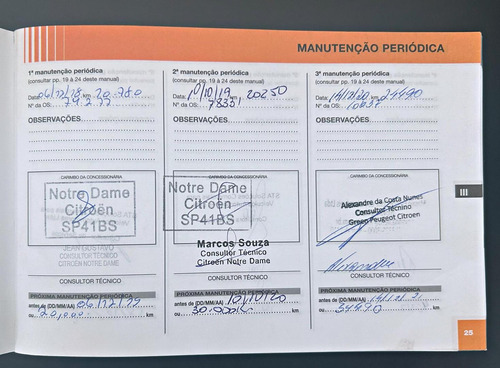 MANUTENÇÃO PERIÓDICA
1ª manutenção periódica
(consultar pp. 19 à 24 deste manual)
Data: km
Nº da OS:
OBSERVAÇÕES
CARIMBO DA CONCESSIONÁRIA
Notre Dame
Citroën
SP41BS
JEAN GUSTAVO
CONSULTOR TÉCNICO
CITROËN NOTRE DAME
CONSULTOR TÉCNICO
PRÓXIMA MANUTENÇÃO PERIÓDICA
antes de (DD/MM/AA)
ou 20,000 km
2ª manutenção periódica
(consultar pp. 19 à 24 deste manual)
Data: 10/10/19 km 20250
Nº da OS:
OBSERVAÇÕES
CARIMBO DA CONCESSIONÁRIA
Notre Dame
Citroën
SP41BS
Marcos Souza
Consultor Técnico
Citroën Notre Dame
CONSULTOR TÉCNICO
PRÓXIMA MANUTENÇÃO PERIÓDICA
antes de (DD/MM/AA) 10/10/20
ou 30.000 km
3ª manutenção periódica
(consultar pp. 19 à 24 deste manual)
Data: km 24490
Nº da OS:
OBSERVAÇÕES
CARIMBO DA CONCESSIONÁRIA
Alexandre da Costa Nunes
Consultor Técnino
Green Peugeot Citroen
Alexandre
CONSULTOR TÉCNICO
PRÓXIMA MANUTENÇÃO PERIÓDICA
antes de (DD/MM/AA)
ou 34490 km
III
25